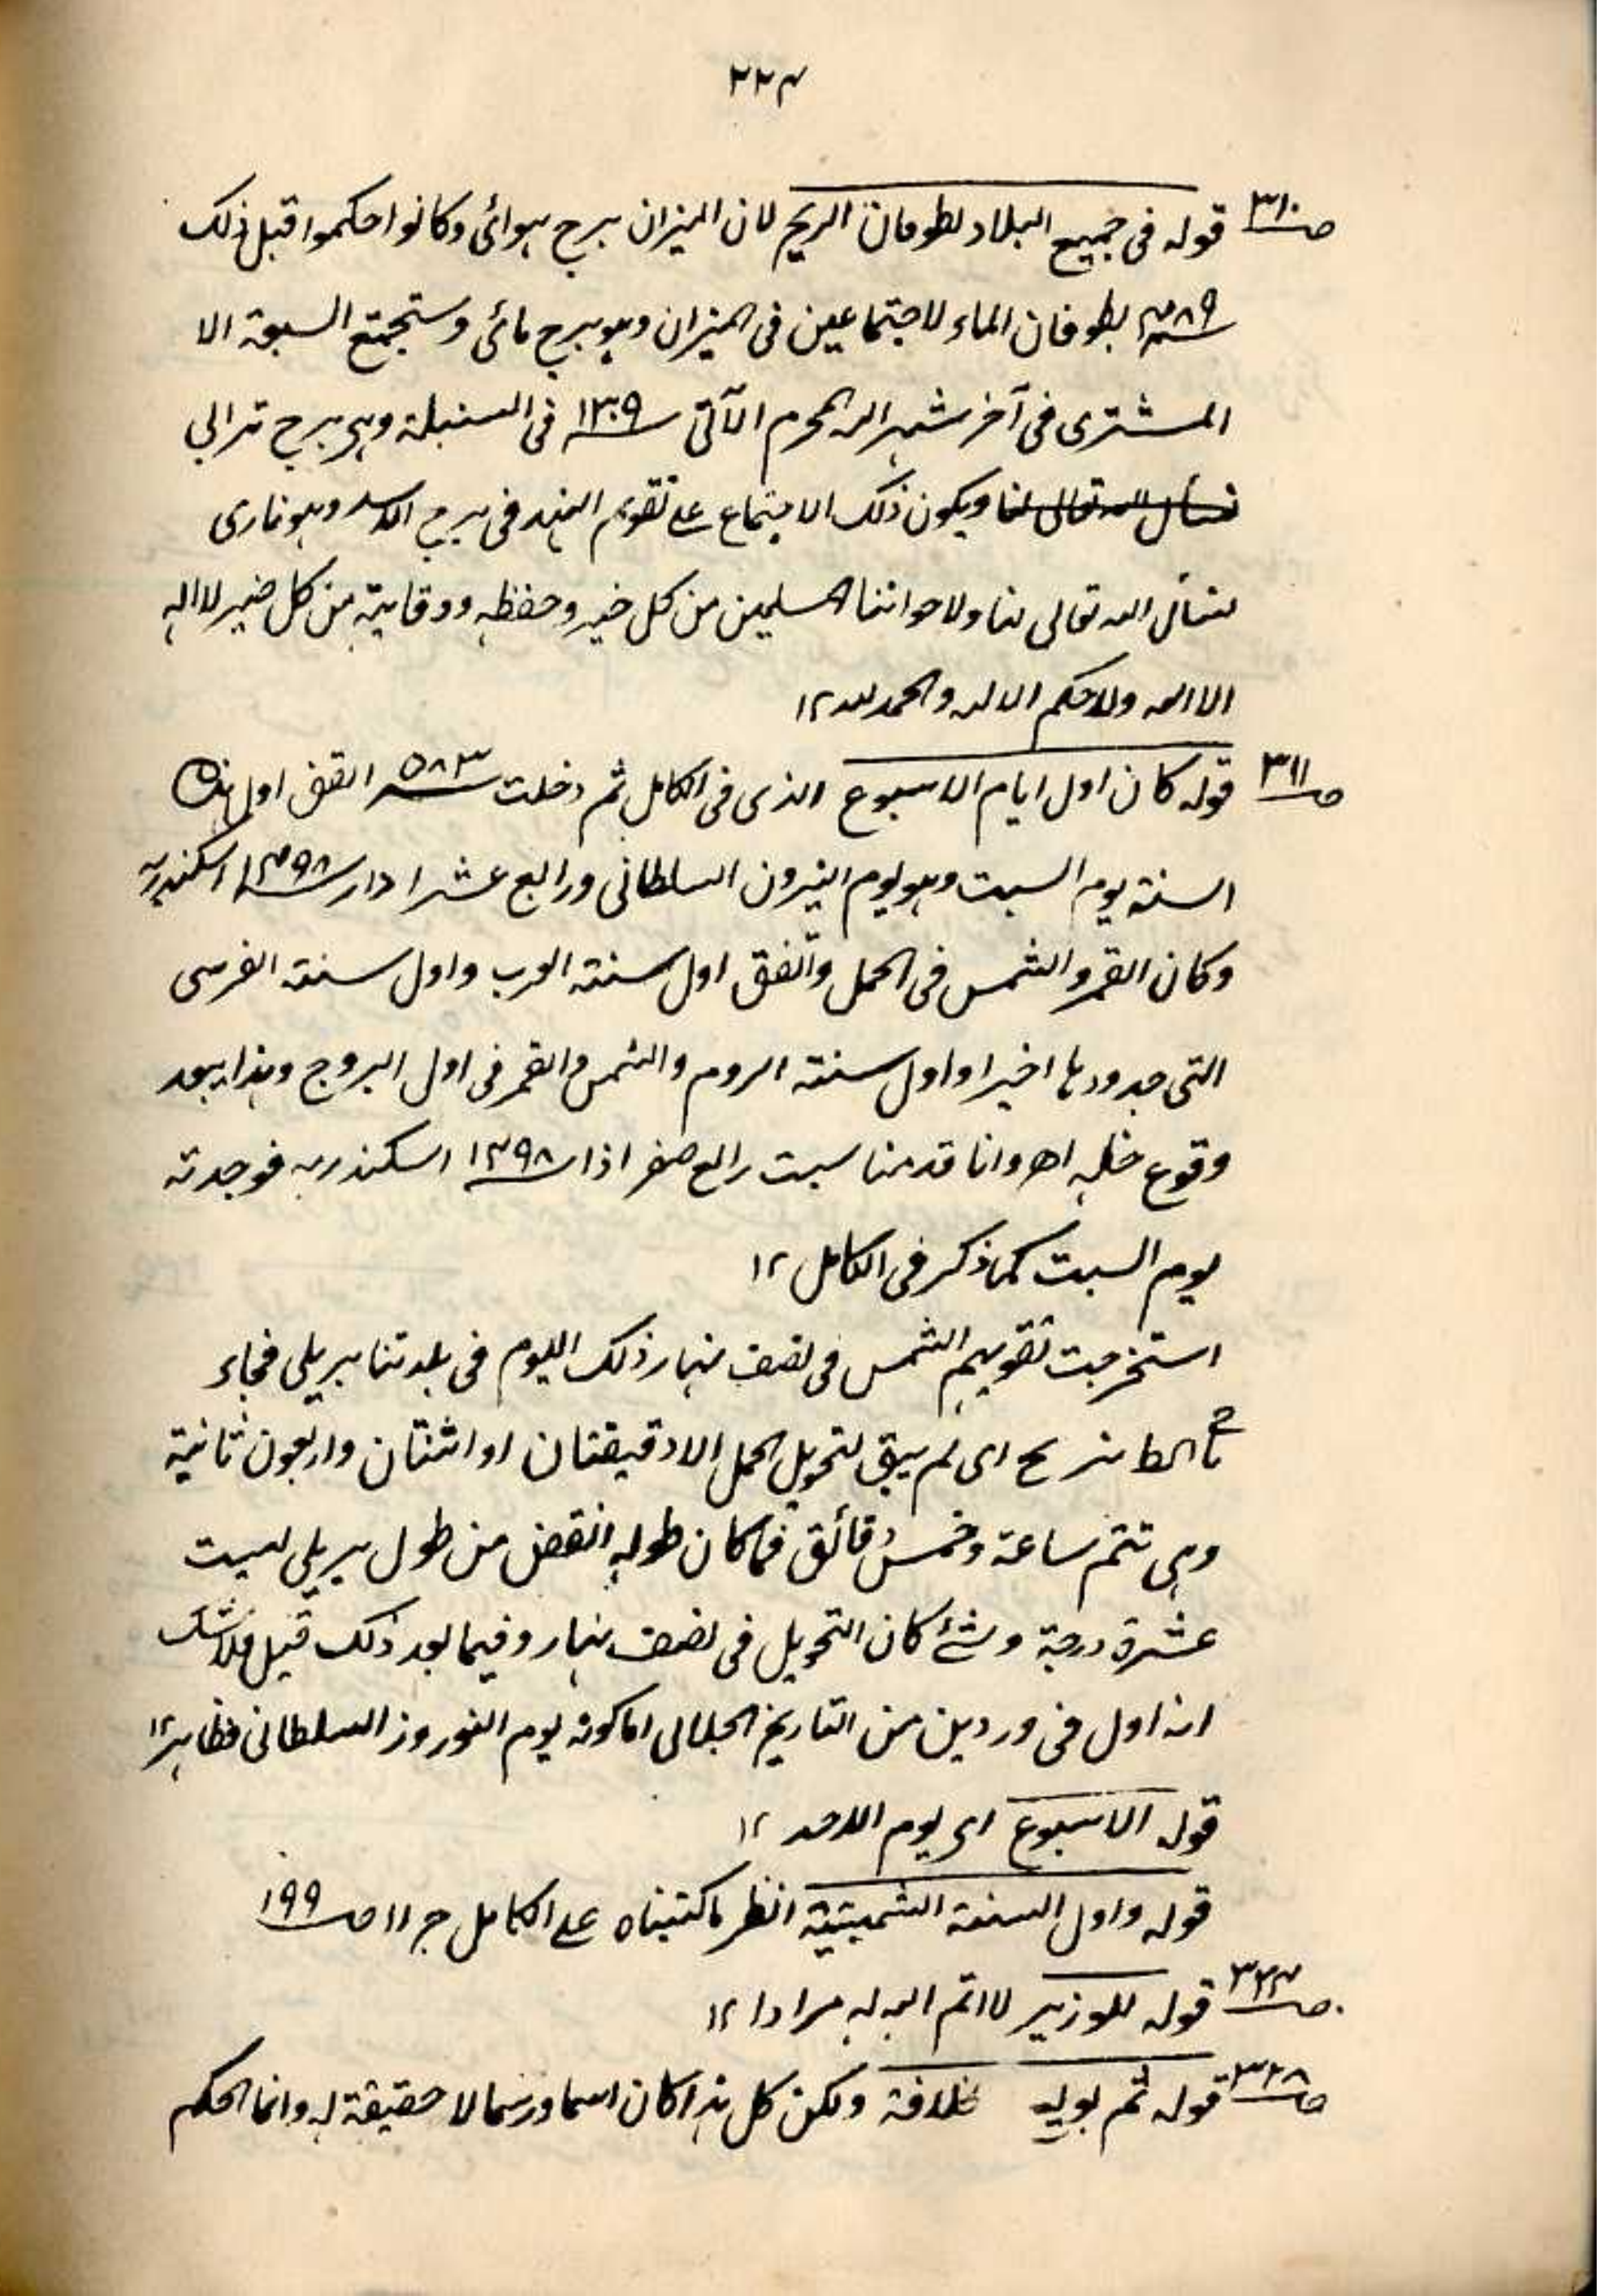 ٢٢٤
ص٣١٠ قوله فى جميع البلاد لطوفان الريح لان الميزان برج هوائى وكانوا حكموا قبل ذلك
بطوفان الماء لاجتماعين فى الميزان وهو برج مائى وستجتمع السبعة الا
المشترى فى آخر شهر الله المحرم الآتى ١٣٠٩ فى السنبلة وهى برج ترابى
نسأل الله تعالى لنا ويكون ذلك الاجتماع على تقويم الهند فى برج الاسد وهو نارى
نسأل الله تعالى لنا ولاخواننا المسلمين من كل خير وحفظه ووقايته من كل ضير لا اله
الا الله ولا حكم الا لله والحمد لله ١٢
ص٣١١ قوله كان اول ايام الاسبوع الذى فى الكامل ثم دخلت ٥٨٣ اتفق اول هذه
السنة يوم السبت وهو يوم النيرون السلطانى ورابع عشر اذار ١٤٩٨ اسكندرية
وكان القمر والشمس فى الحمل واتفق اول سنة العرب واول سنة الفرس
التى جددوها اخيرا واول سنة الروم والشمس والقمر فى اول البروج وهذا يبعد
وقوع مثله اھ وانا قدمنا سبت رابع صفر اذار ١٤٩٨ اسكندريه فوجدته
يوم السبت كما ذكر فى الكامل ١٢
استخرجت تقويم الشمس فى نصف نهار ذلك اليوم فى بلدتنا بريلى فجاء
اى لم يبق لتحويل الحمل الا دقيقتان او اثنتان واربعون ثانية
وهى تتم ساعة وخمس دقائق فما كان طوله انقض من طول بريلى لسبت
عشرة درجة وشئ كان التحويل فى نصف نهار وفيما بعد ذلك قبيل فلا شك
انه اول فى وردين من التاريخ الجلالى اما كونه يوم النوروز السلطانى فظاهر ١٢
قوله الاسبوع اى يوم الاحد ١٢
قوله واول السنة الشمسية انظر ما كتبناه على الكامل ج ١١ ص ١٩٩
ص٣٢٤ قوله للوزير لا اتم الله له مرادا ١٢
ص٣٢٨ قوله ثم بويع خلافة ولكن كل هذا كان اسما ورسما لا حقيقة له وانما الحكم